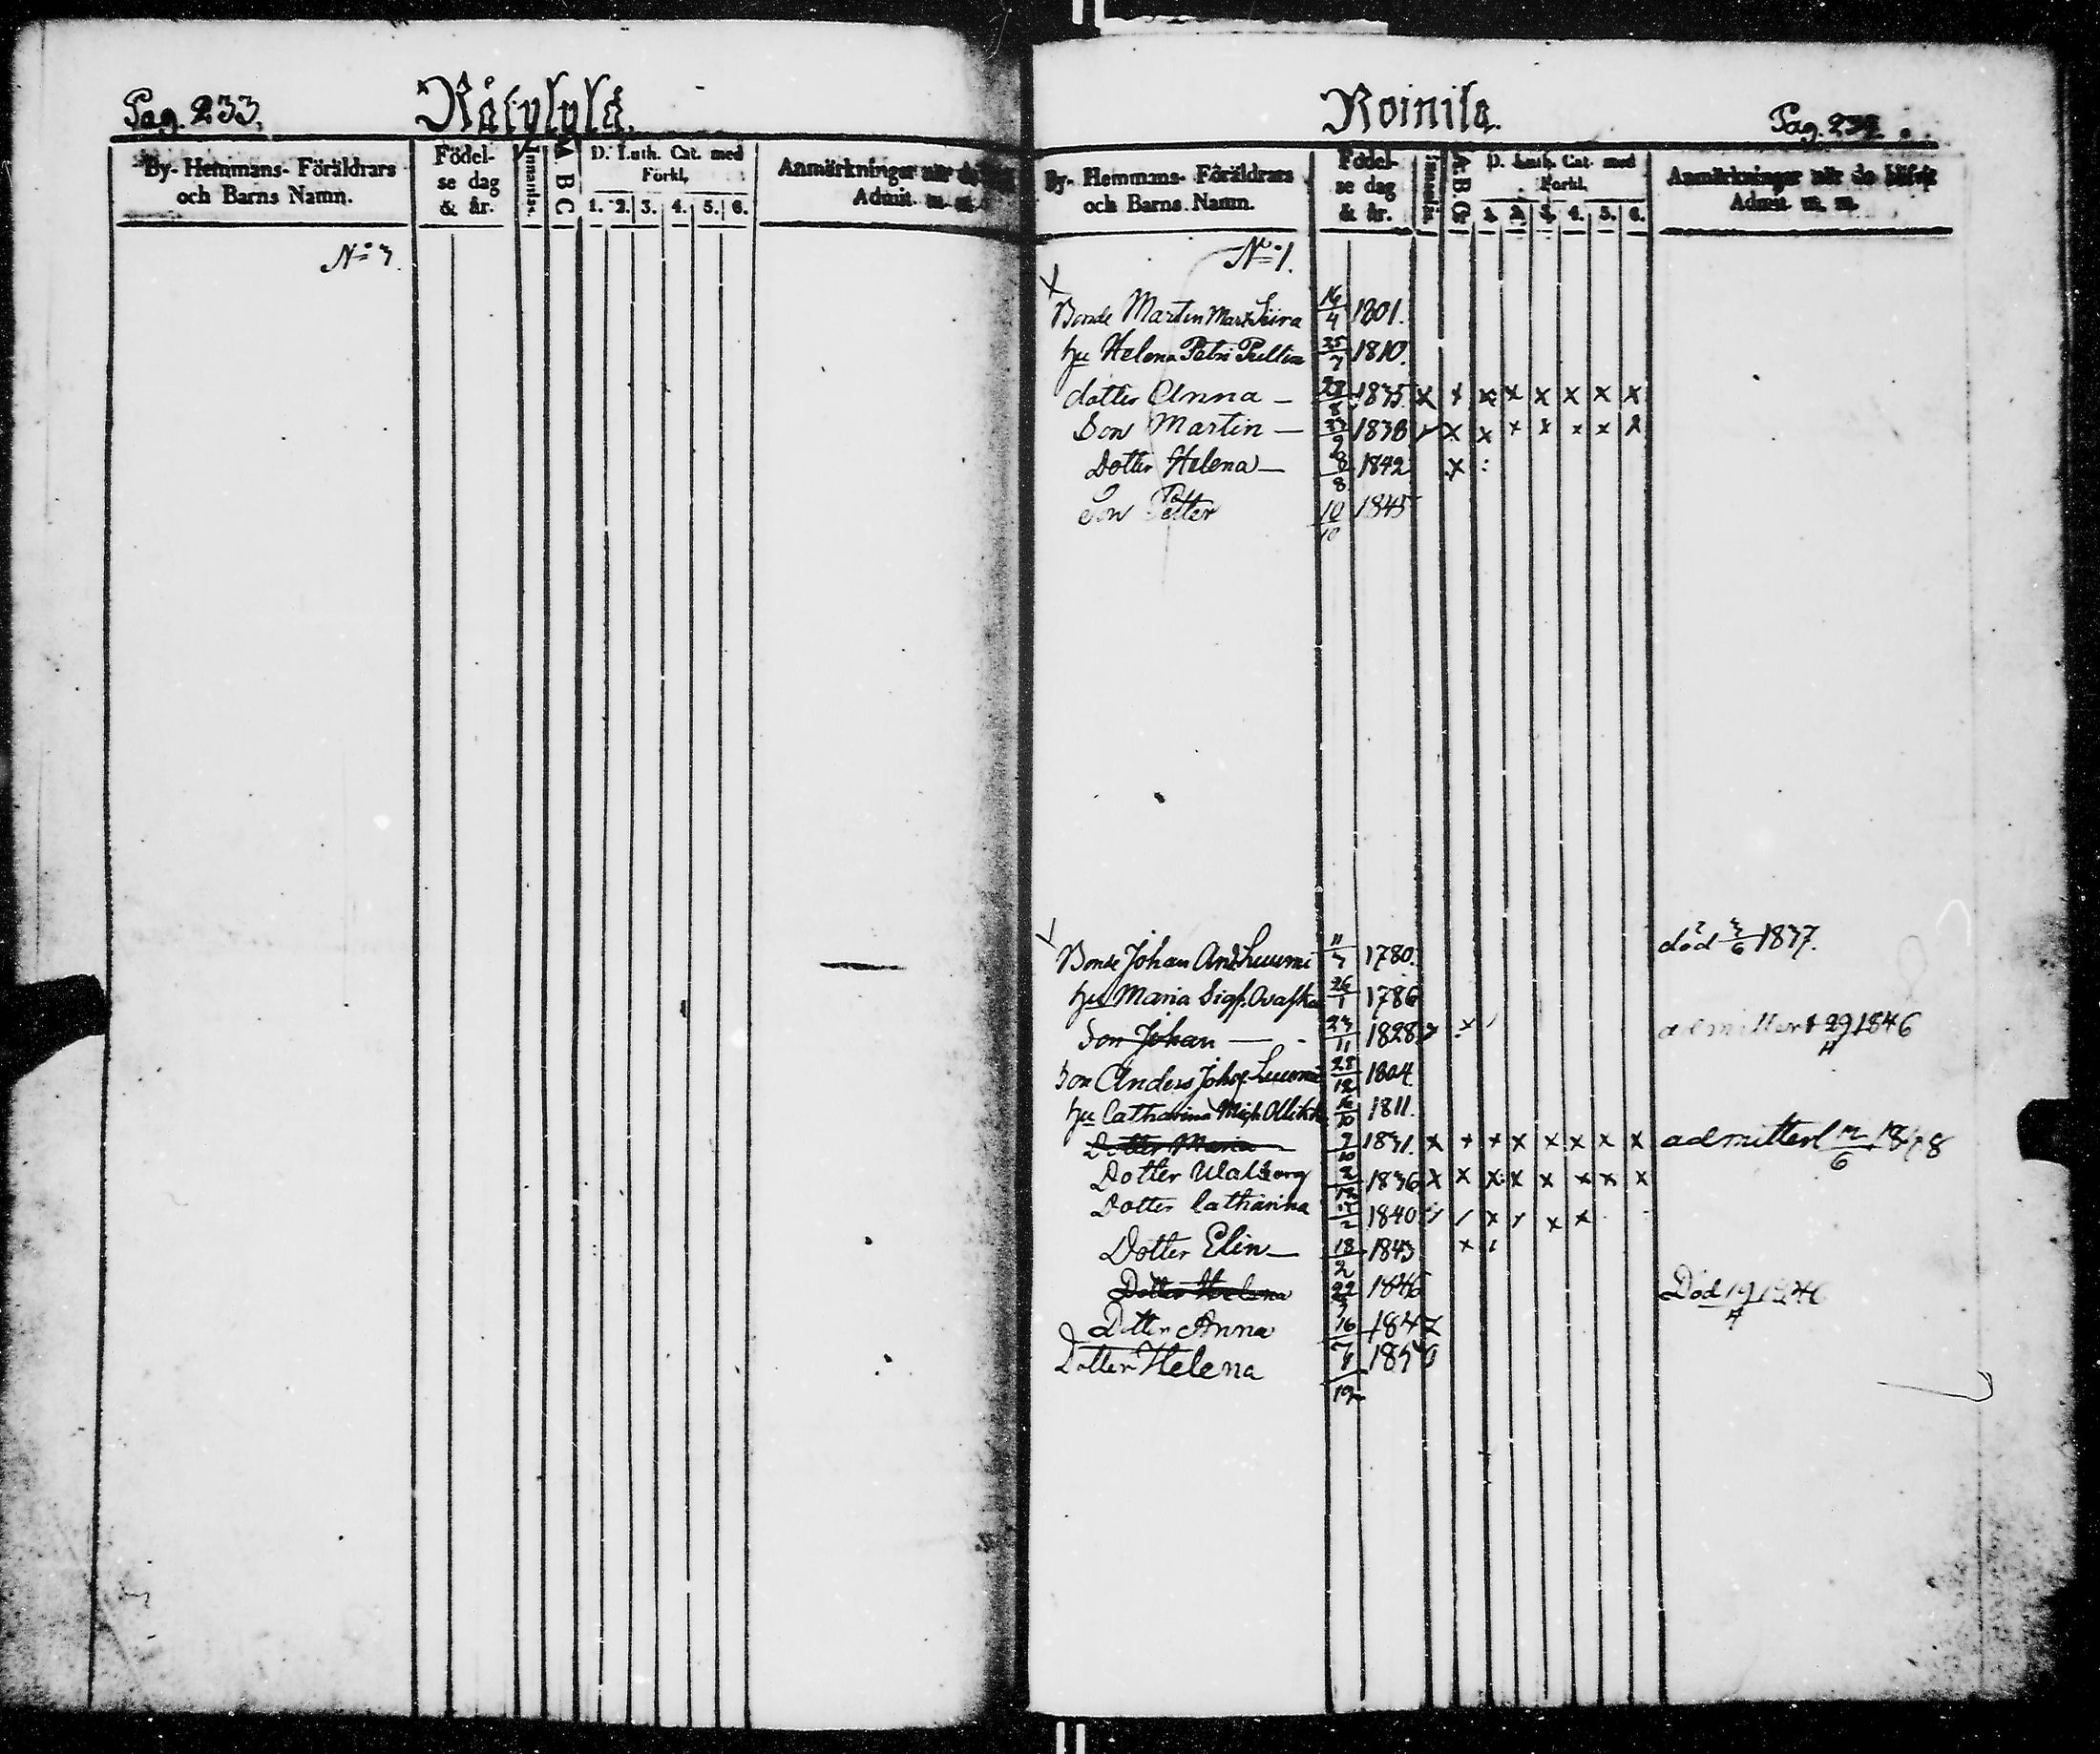 Pag. 233.
By- Hemmans- Föräldrars
och Barns Namn.
Födel-
se dag
& år.
Innanläs.
A B C
D. Luth. Cat. med
Förkl.
1. 2. 3. 4. 5. 6.
Anmärkningar när de
Admit. m. m.
No 3.
Roinila.
Pag.
By- Hemmans- Föräldrars
och Barns Namn.
Födel-
se dag
& år.
Innanläs.
A. B. C.
D. Luth. Cat. med
Förkl.
1. 2. 3. 4. 5. 6.
Anmärkningar när de blifvit
Admit. m. m.
No 1.
Bonde Martin Mart. 16/4 1801.
hu Helena Petri 25/7 1810.
dotter Anna — 28/8 1835. x x x x x x x x
Son Martin — 1838 x x x x x x x
Dotter Helena — 8/8 1842 x
Son Petter 10/10 1845
Bonde Johan And. 11/7 1780. död 3/6 1837.
hu Maria Sigf. 26/1 1786
Son Johan — 23/11 1828 x x admittert 29 1846
Son Anders Johs. 28/12 1804
hu Catharina Mich. Ollikka 16/10 1811.
Dotter Maria 9/10 1831. x x x x x x x x admitterd 12/6 1848
Dotter Walborg 2/12 1836 x x x x x x x x
Dotter Catharina 1840 x x x x
Dotter Elin — 18/2 1843 x
Dotter Helena 22 1846 Död 19 1846
Dotter Anna 16 1847
Dotter Helena 1850